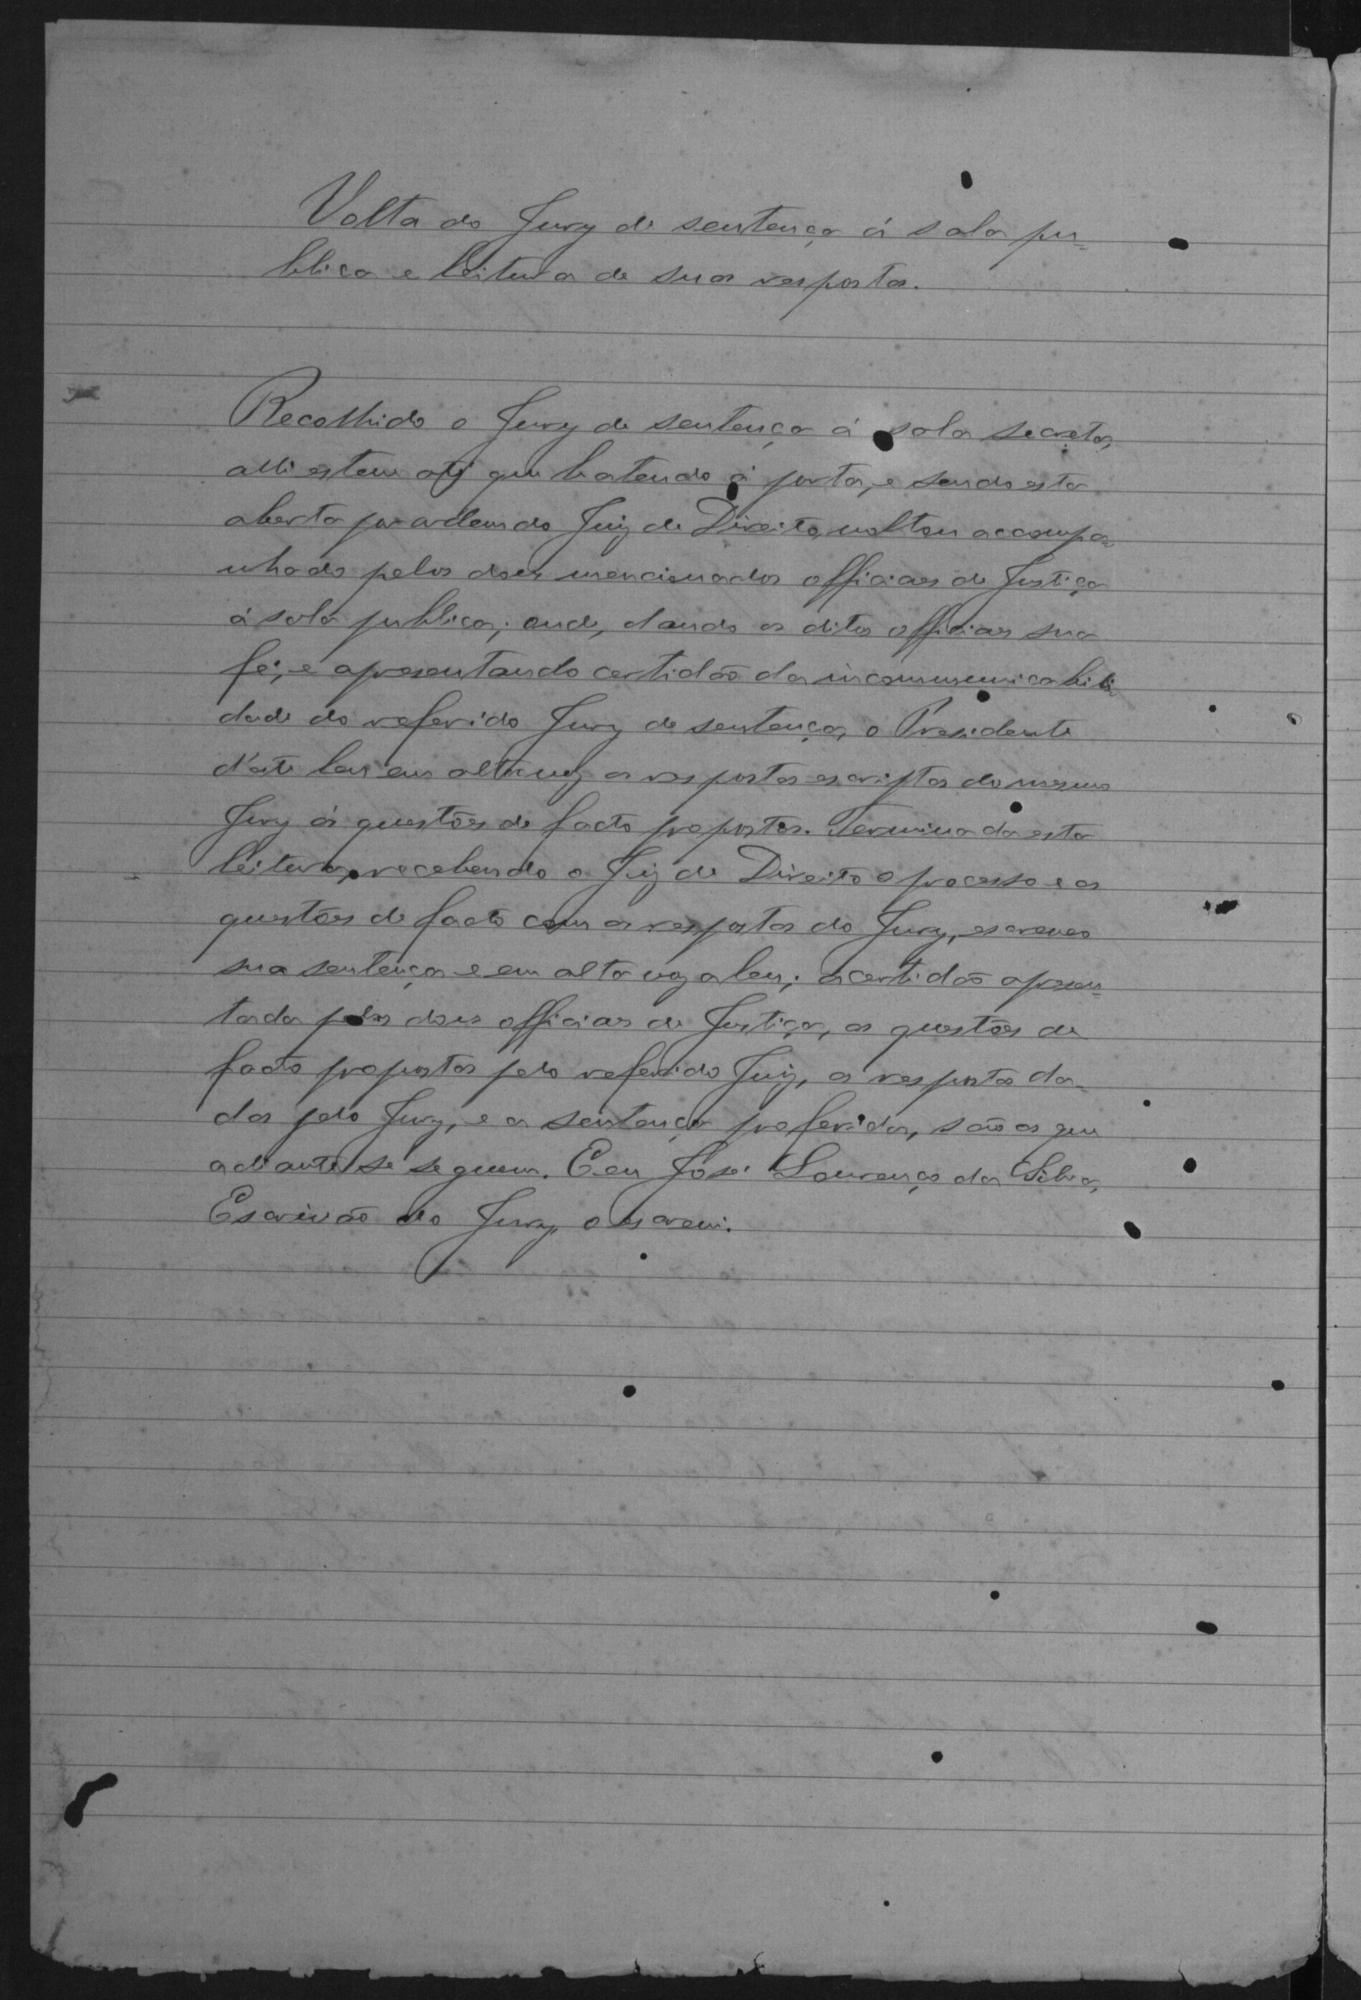 Volta do Jury de sentença á sala pu=
blica e leitura de suas respostas.
Recolhido o Jury de sentença á sala secreta,
alli esteve até que batendo á porta, e sendo esta
aberta por ordem do Juiz de Direito, voltou accompa=
nhado pelos dous mencionados officiaes de Justiça
á sala publica; onde, dando os ditos officiaes sua
fé, e apresentando certidão da incommunicabili
dade do referido Jury de sentença, o Presidente
d'este leu em alta voz as respostas escriptas do mesmo
Jury ás questões de facto propostas. Terminada esta
leitura, recebendo o Juiz de Direito o processo e as
questões de facto com as respostas do Jury, escreveo
sua sentença e em alta voz a leu; a certidão apresen=
tada pelos dous officiaes de Justiça, as questões de
facto propostas pelo referido Juiz, as respostas da-
das pelo Jury, e a sentença proferida, são as que
adiante se seguem. E eu José Lourenço da Silva,
Escrivão do Jury, o escrevi.